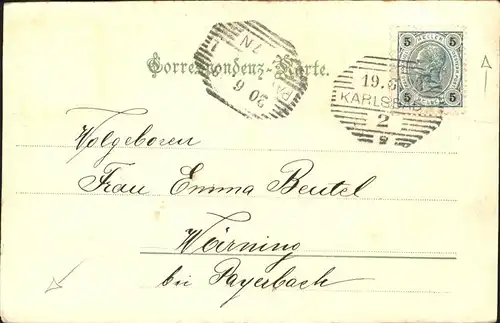 5 HELLER 5
Correspondenz-Karte.
20 6
19.6
KARLSBAD
2
5 5
Wolgeboren
Frau Emma Beutel
bei Payerbach